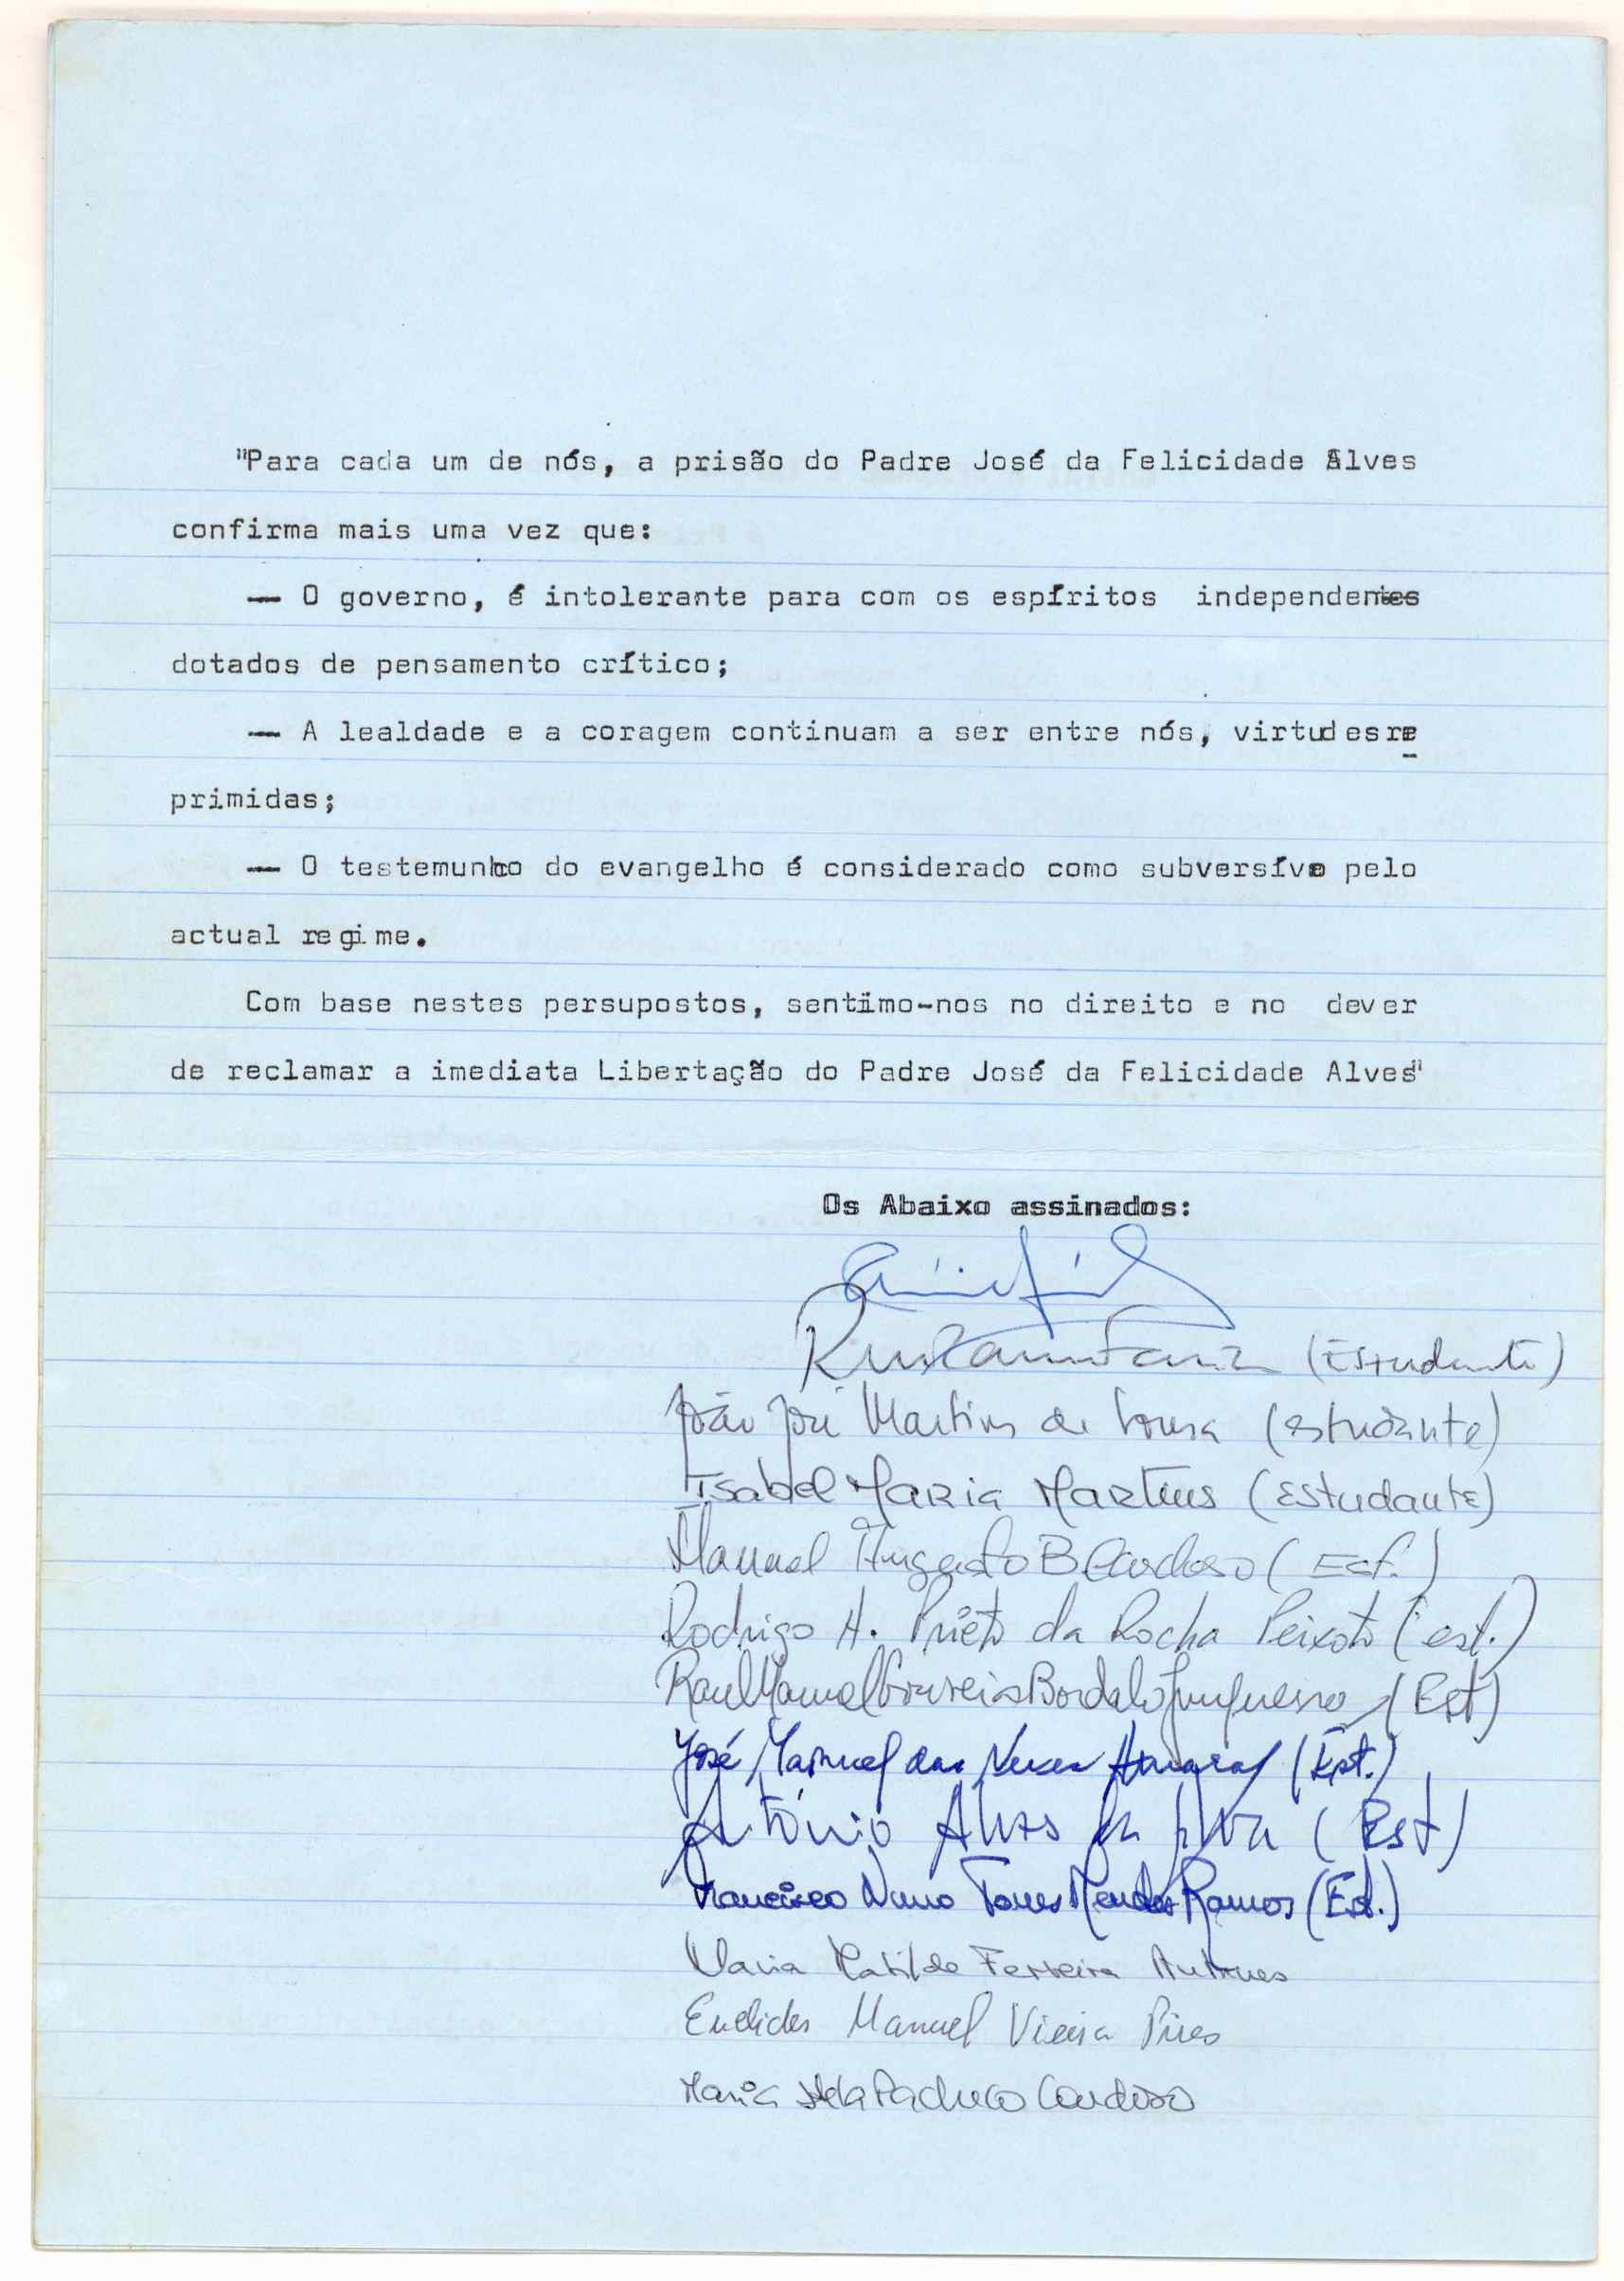 "Para cada um de nós, a prisão do Padre José da Felicidade Alves
confirma mais uma vez que:
— O governo, é intolerante para com os espíritos independentes
dotados de pensamento crítico;
— A lealdade e a coragem continuam a ser entre nós, virtudes re
primidas;
— O testemunho do evangelho é considerado como subversívo pelo
actual regime.
Com base nestes persupostos, sentimo-nos no direito e no dever
de reclamar a imediata Libertação do Padre José da Felicidade Alves"
Os Abaixo assinados:
(Estudante)
João José Martins de Sousa (estudante)
Isabel Maria Martins (Estudante)
Manuel Augusto B Cardoso (Est.)
Rodrigo H. Prieto da Rocha Peixoto (est.)
Raul Manuel Gouveia Bordalo Junqueiro (Est)
José Manuel das Neves Amaral (Est.)
António Alves da Silva (Est)
Francisco Nuno Torres Mendes Ramos (Est.)
Maria Matilde Ferreira Antunes
Euclides Manuel Vieira Pires
Maria Pacheco Cardoso